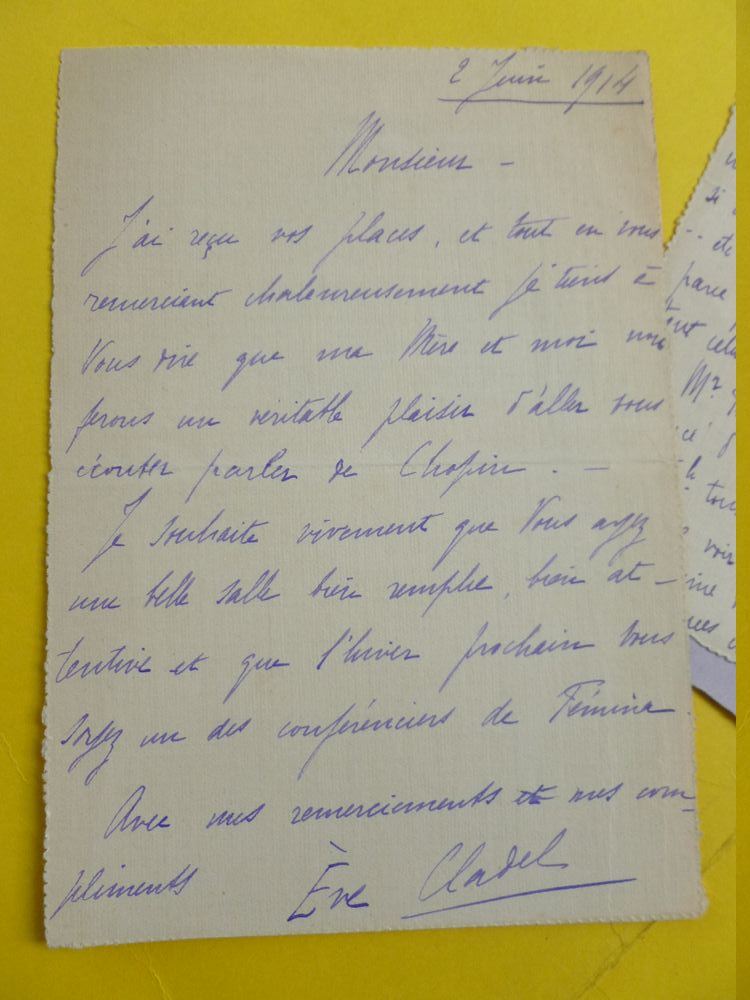 2 Juin 1914
Monsieur -
J'ai reçu vos places, et tout en vous
remerciant chaleureusement je tiens à
Vous dire que ma Mère et moi nous
ferons un véritable plaisir d'aller vous
écouter parler de Chopin. -
Je souhaite vivement que Vous ayez
une belle salle bien remplie, bien at-
tentive et que l'hiver prochain Vous
soyez un des conférenciers de Fémina.
Avec mes remerciements et mes com-
pliments
Ève Cladel
si
etc
parce
celui
Mr
tou
voir